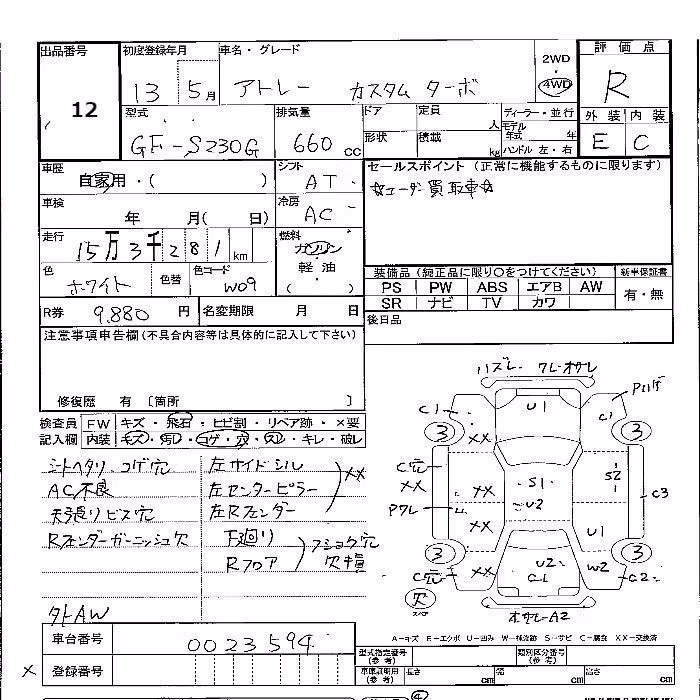 出品番号 初度登録年月 車名・グレード 評価点
12 13 5月 アトレー カスタム ターボ 2WD 4WD R
型式 排気量 ドア 定員 人 ディーラー・並行 外装 内装
GF-S230G 660cc 形状 積載 kg モデル年式 年 ハンドル 左・右 E C
車歴 自家用・( ) シフト AT
セールスポイント (正常に機能するものに限ります)
☆ユーザー買取車☆
車検 年 月( 日) 冷房 AC
走行 15万3千281km 燃料 ガソリン
軽油
( )
色 ホワイト 色替 色コード W09
装備品 (純正品に限り○をつけてください) 新車保証書
PS PW ABS エアB AW 有・無
SR ナビ TV カワ
R券 9,880円 名変期限 月 日 後日品
注意事項申告欄(不具合内容等は具体的に記入して下さい)
修復歴 有 〔箇所 〕
検査員 FW キズ・飛石・ヒビ割・リペア跡・×要
記入欄 内装 キズ・汚レ・コゲ・穴・スレ・キレ・破レ
シートヘタリ コゲ穴 左サイドシル
AC不良 左センターピラー XX
天張リビス穴 左Rフェンダー
Rフェンダーガーニッシュ欠 下廻り
Rフロア フショク穴
欠損
外AW
ハズレ ワレ・オサレ
C1 U1 C1 Pハゲ
3 XX 3
C穴 S2
XX XX S1 C3
Pワレ U2
XX U1
3 3
C穴 XX U2 W2 C2
C1
欠
スペア
オサレA2
A-キズ E-エクボ U-凹み W-補修跡 S-サビ C-腐食 XX-交換済
車台番号 0023594
型式指定番号 (参考) 類別区分番号 (参考)
× 登録番号
車庫証明用 (参考) 長さ cm 幅 cm 高さ cm